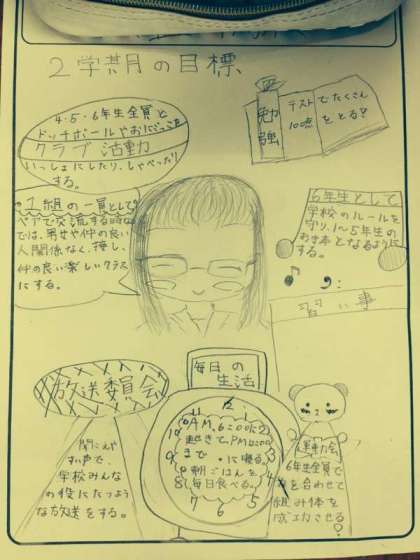 2学期の目標
4・5・6年生全員と
ドッチボールやおにごっこ
クラブ活動
いっしょにしたり、しゃべったり
する。
勉強
テストでたくさん
100点をとる?
1組の一員として
ペアで交流する時など
では、男女や仲の良い
人関係なく、接し、
仲の良い楽しいクラス
にする。
6年生として
学校のルールを
守り、1~5年生の
お手本となるように
する。
習い事
毎日の
生活
放送委員会
聞こえや
すい声で、
学校みんな
の役にたつよう
な放送をする。
12
11
10
9
8
7
6
5
AM.6:00に
起きて、PM10:00
まで
に寝る。
朝ごはんを
毎日食べる。
運動会
6年生全員で
を合わせて
組み体を
成工力させる?